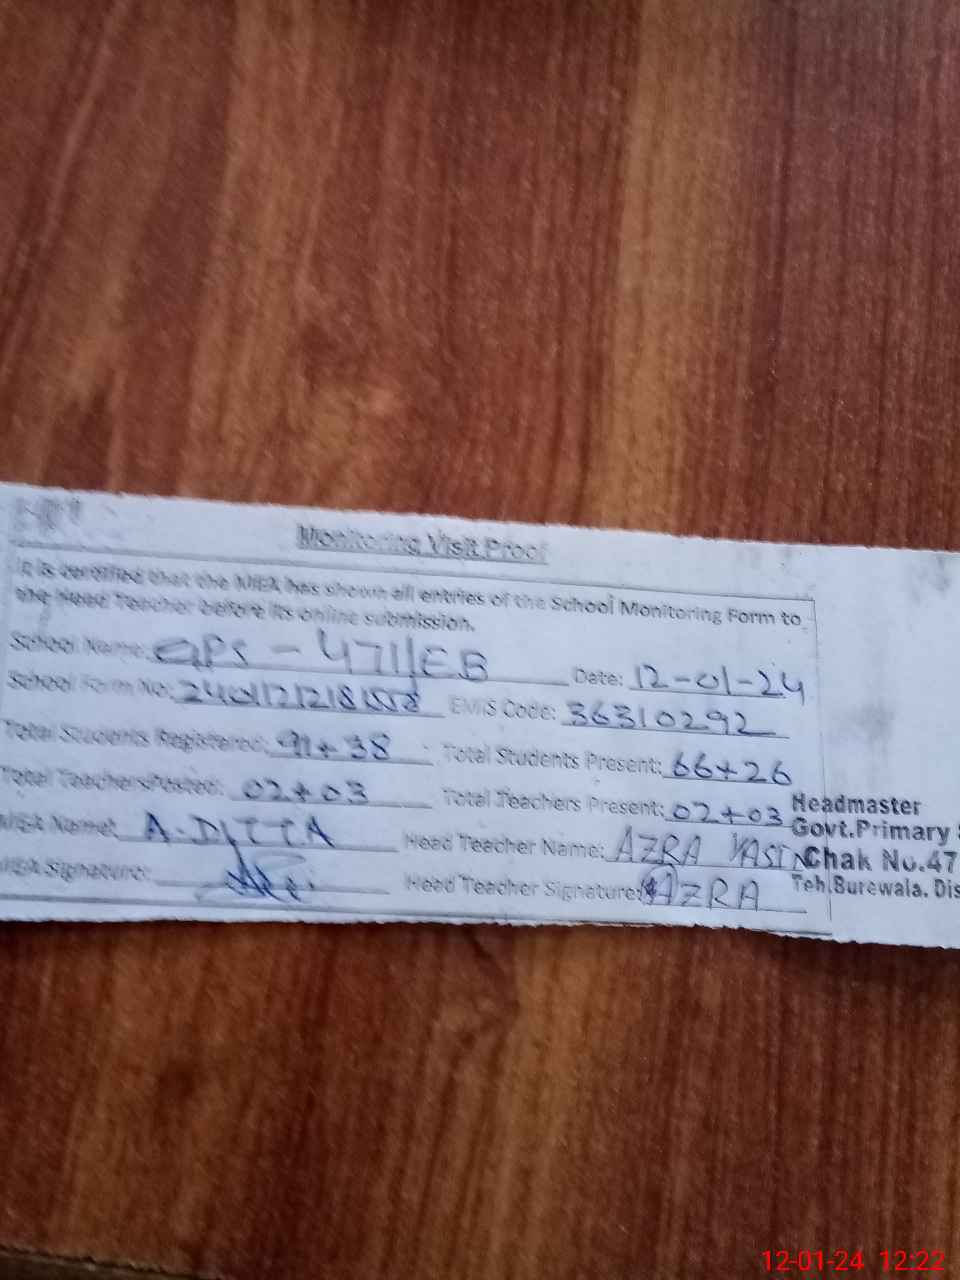 Monitoring Visit Proof
It is certified that the MEA has shown all entries of the School Monitoring Form to
the Head Teacher before its online submission.
School Name: GPS - 471/EB Date: 12-01-24
School Form No: EMIS Code: 36310292
Total Students Registered: 91+38 Total Students Present: 66+26
Total Teachers Posted: 02+03 Total Teachers Present: 02+03
MEA Name: A. DITTA Head Teacher Name: AZRA YASIN
MEA Signature: Head Teacher Signature: AZRA
Headmaster
Govt.Primary
Chak No.47
Teh.Burewala. Dis
12-01-24 12:22